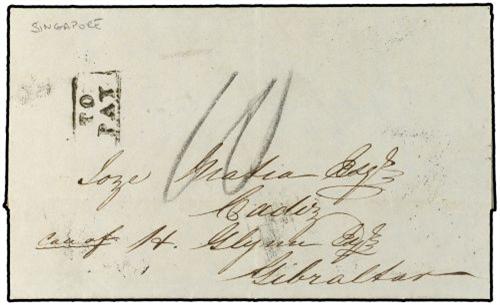 SINGAPORE
TO
PAY
10
Joze Matia Esqr
Cadiz
care of H. Glynn Esqr
Gibraltar